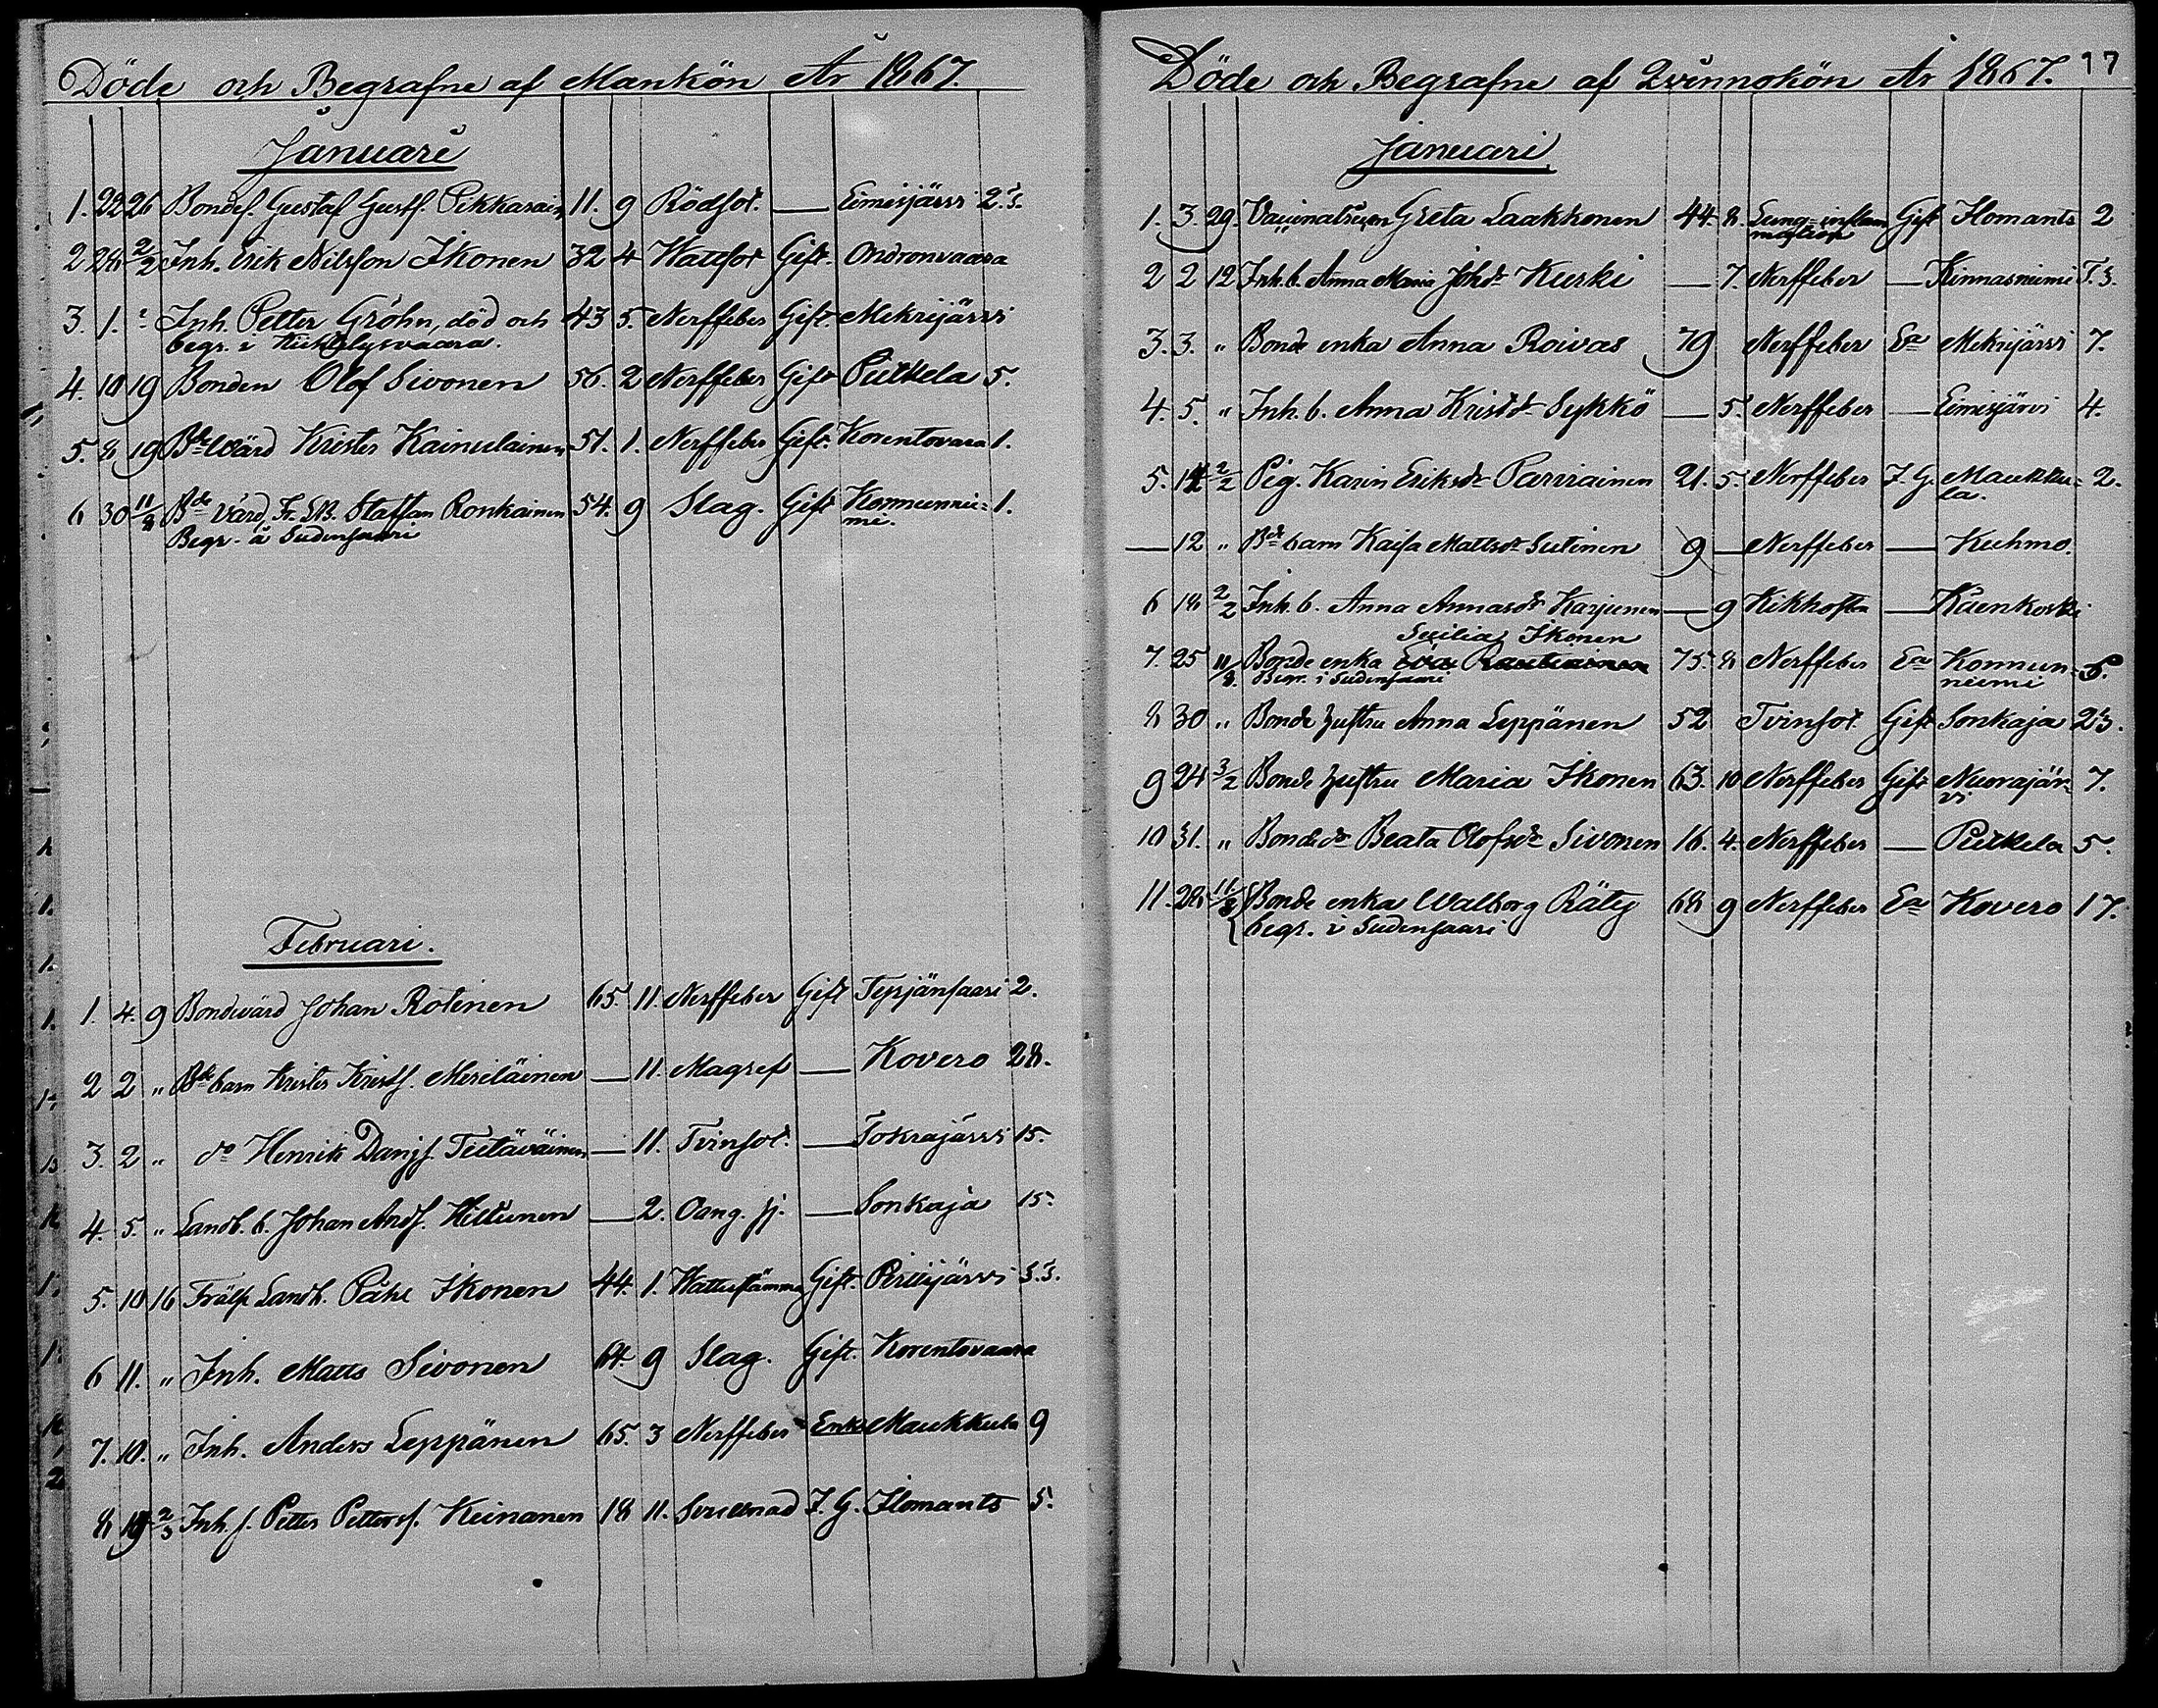 Döde och Begrafne af Mankön År 1867.
Januari
1. 22 26 Bondes. Gustaf Gustfs. Pikkarain 11. 9 Rödsot. — Eimisjärvi 2.
2 28 2/2 Inh. Erik Nilsson Ikonen 32 4 Wattsot Gift. Ondronvaara
3. 1. Inh. Petter Gröhn, död och 43 5. Nerffeber Gift. Mekrijärvi
begr. i Kichtelysvaara.
4. 10 19 Bonden Olof Sivonen 56. 2 Nerffeber Gift Putkela 5.
5. 8 19 Bde Wärd Krister Kainulainen 51. 1. Nerffeber Gift. Korentovara 1.
6 30 11/8 Bde Värd, Staffan Ronkainen 54. 9 Slag. Gift Konnunnie=mi. 1.
Begr. å Sudensaari
Februari.
1. 4. 9 Bondevärd Johan Rotinen 65. 11. Nerffeber Gift Tepjänsaari 2.
2 2 " Bde barn Krister Krists. Meriläinen — 11. Magref — Kovero 28.
3. 2 " do Henrik Danjs. Tietäväinen — 11. Tvinsot. — Tokrajärvi 15.
4. 5. " Landb. b. Johan Ands. Hiltunen — 2. Oang. sj. — Sonkaja 15.
5. 10 16 Frälse Landb. Påhl Ikonen 44. 1. Gift. Piilijärvi
6 11. " Inh. Matts Sivonen 64. 9 Slag. Gift. Korentovaara
7. 10. " Inh. Anders Leppänen 65. 3 Nerffeber Enkl Maukkula 9
8 19 2/3 Inh. s. Petter Petters. Keinanen 18 11. J. G. Ilomants 5.
Döde och Begrafne af Qvinnokön År 1867. 17
Januari
1. 3. 29. Greta Laakkonen 44. 8. Lung=inflam Gift Ilomants 2
mation
2 2 12 Inh. b. Anna Maria Johdr Kurki — 7. Nerffeber — Kinnasniemi
3. 3. " Bonde enka Anna Roivas 79 Nerffeber Ea Mekrijärvi 7.
4. 5. " Inh. b. Anna Kristdr Sykkö — 5. Nerffeber — Eimisjärvi 4.
5. 14 2/2 Pig. Karin Eriksdr Parviainen 21. 5. Nerffeber J. G. Maukku=la. 2.
— 12 " Bde barn Kaisa Mattsdr Sutinen 9 — Nerffeber — Kuhmo.
6 18 2/2 Inh. b. Anna Annasdr Karjunen — 9 Kikhosta — Käenkoski
Sisilia Ikonen
7. 25 11/8. Bonde enka Eva Rautiainen 75. 8 Nerffeber Ea Konnun=niemi
Begr. i Sudensaari
8 30 " Bonde hustru Anna Leppänen 52 Tvinsot Gift Sonkaja 23.
9 24 3/2 Bonde hustru Maria Ikonen 63. 10 Nerffeber Gift Nuorajär=vi 7.
10 31. " Bondedr Beata Olofsdr Sivonen 16. 4. Nerffeber — Putkela 5.
11. 28 11/8 Bonde enka Walborg Räty 68 9 Nerffeber Ea Kovero 17.
begr. i Sudensaari